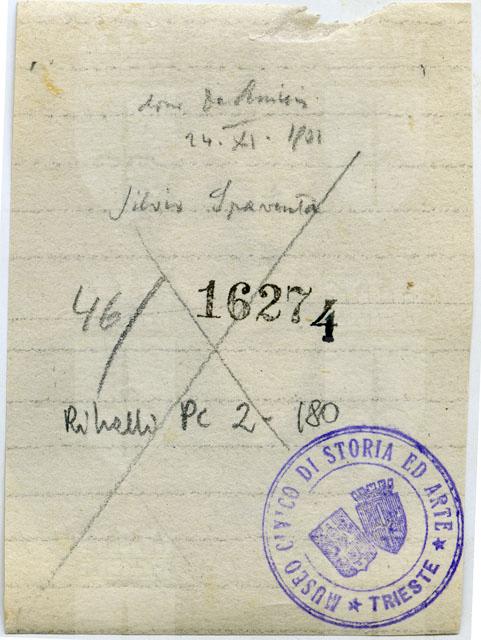 24. XI. 
Silvio Spaventa
46/
16274
Ritratti Pc 2 - 180
MUSEO CIVICO DI STORIA ED ARTE
★ TRIESTE ★